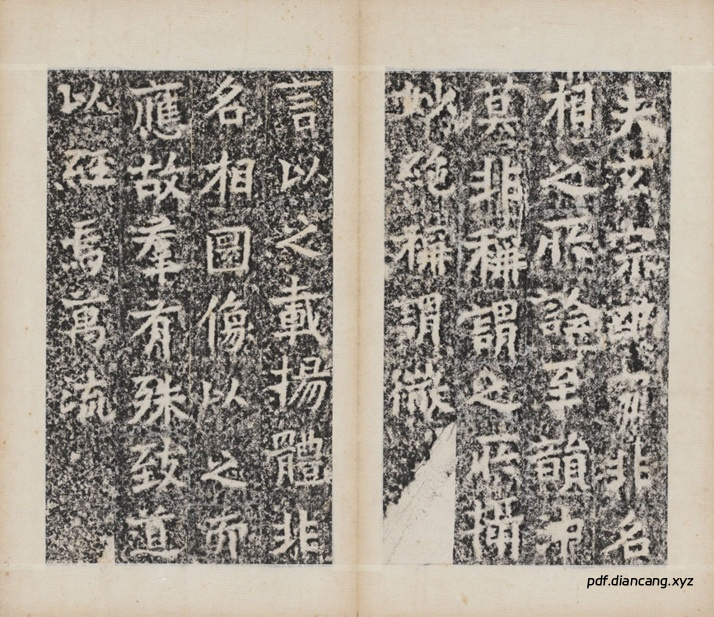 夫玄宗幽寂非名
相之所詮至韻沖
莫非稱謂之所攝
妙絕稱謂微
言以之載揚體非
名相圖像以之而
應故羣有殊致道
以經焉萬流
pdf.diancang.xyz